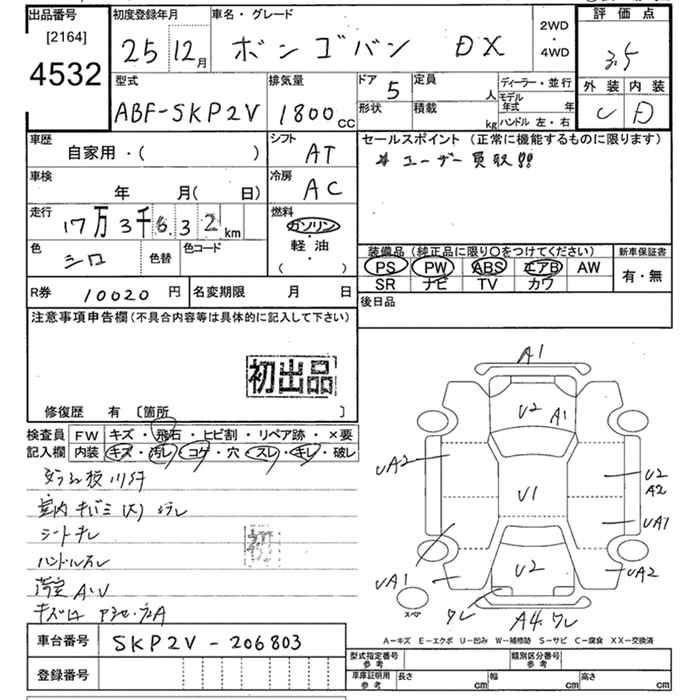 出品番号
[2164]
4532
初度登録年月
25 12月
車名・グレード
ボンゴバン DX
2WD
・
4WD
評価点
3.5
外装 内装
C D
型式
ABF-SKP2V
排気量
1800cc
ドア 5
形状
定員 人
積載 kg
ディーラー・並行
モデル年式 年
ハンドル 左・右
車歴
自家用・( )
シフト
AT
セールスポイント (正常に機能するものに限ります)
* ユーザー買取!!
車検
年 月( 日)
冷房
AC
走行
17万3千6.32km
燃料
ガソリン
・
軽油
・
( )
色
シロ
色替
色コード
装備品 (純正品に限り〇をつけてください)
PS PW ABS エアB AW
SR ナビ TV カワ
新車保証書
有・無
R券 10020円
名変期限 月 日
後日品
注意事項申告欄(不具合内容等は具体的に記入して下さい)
初出品
修復歴 有 〔箇所 〕
検査員
記入欄
FW キズ・飛石・ヒビ割・リペア跡・×要
内装 キズ・汚レ・コゲ・穴・スレ・キレ・破レ
シートキレ
ハンドルスレ
A1
U2 A1
UA2
U2
A2
U1
UA1
UA1
U2
UA2
ワレ
A4.ワレ
スペア
A-キズ E-エクボ U-凹み W-補修跡 S-サビ C-腐食 XX-交換済
車台番号 SKP2V-206803
登録番号
型式指定番号
参考
類別区分番号
参考
車庫証明用
参考
長さ cm
幅 cm
高さ cm